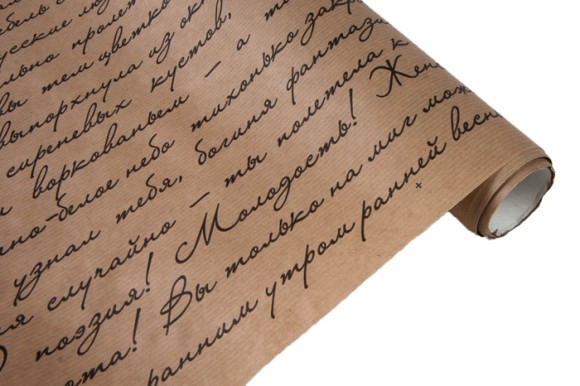 русские лю
ально пролет
вы тем цветко
выпорхнула из ок
сиреневых кустов,
воркованьем – а ти
но-белое небо тихонько закр
узнал тебя, богиня фантази
я случайно – ты полетела к
О поэзия! Молодость! Жен
ота! Вы только на миг мож
ранним утром ранней весн